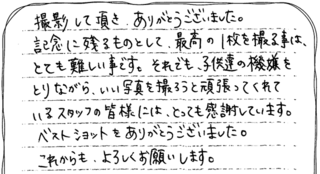 撮影して頂き、ありがとうございました。
記念に残るものとして、最高の1枚を撮る事は、
とても難しい事です。それでも、子供達の機嫌を
とりながら、いい写真を撮ろうと頑張ってくれて
いるスタッフの皆様には、とっても感謝しています。
ベストショットをありがとうございました。
これからも、よろしくお願いします。